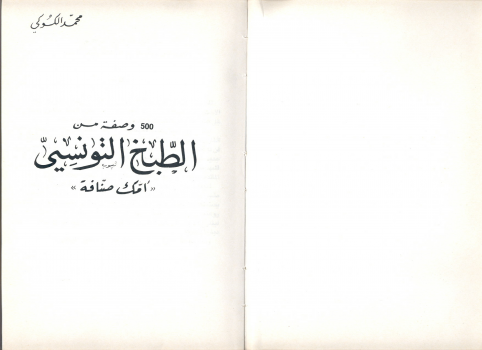 محمد الكوكي
500 وصفة من
الطبخ التونسي
« أمك صنافة »